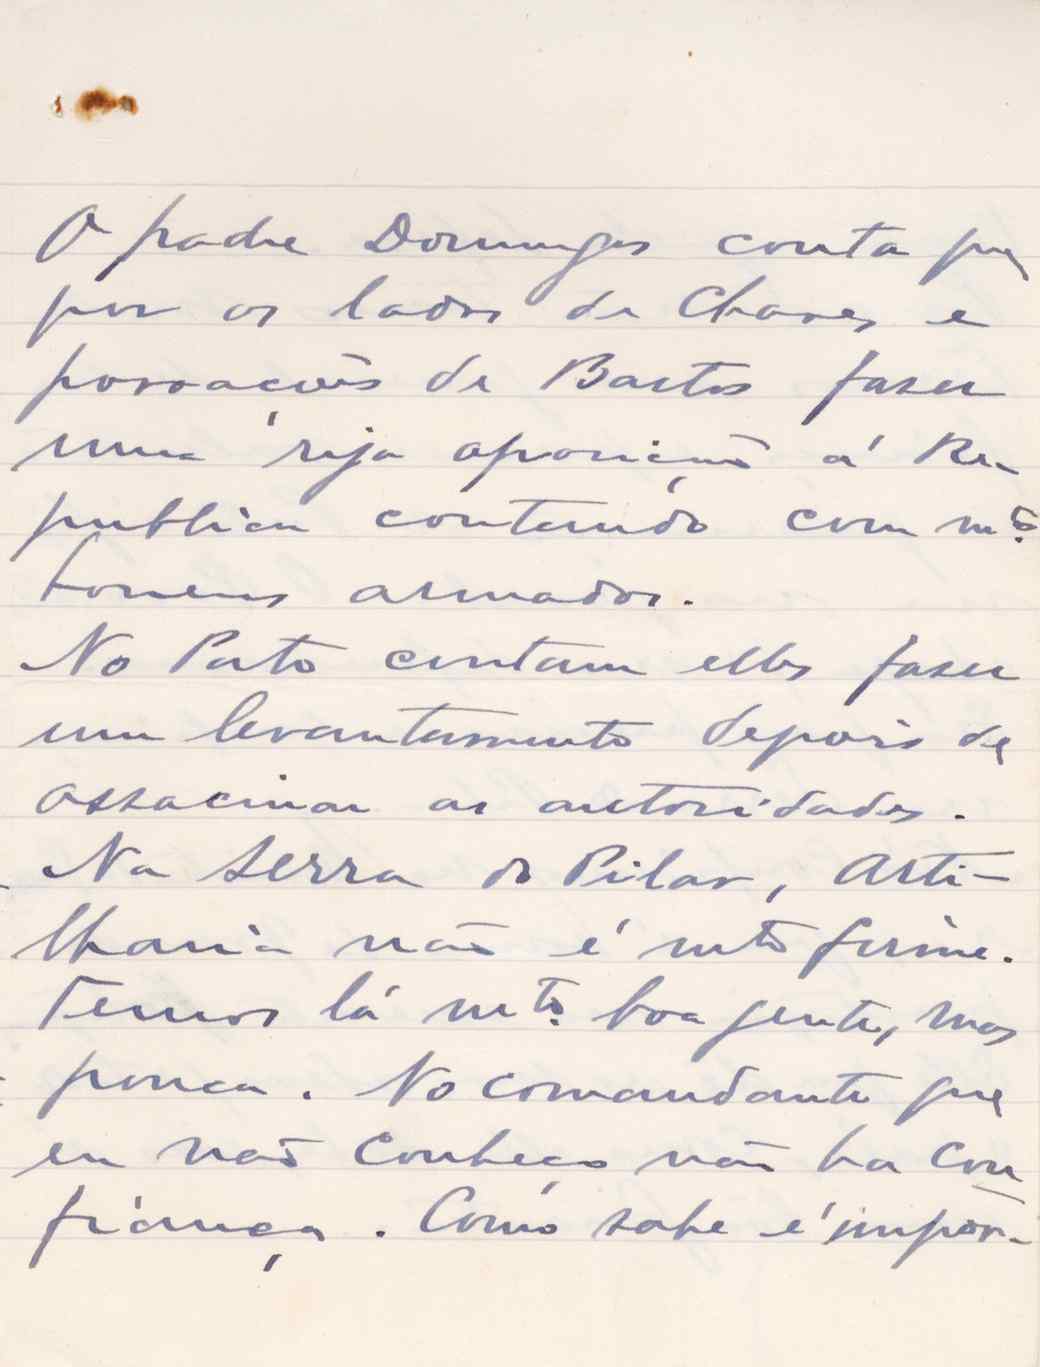 O padre Domingos conta que
por os lados de Chaves e
povoações de Bastos fazer
uma rija oposição á Re-
publica contando com mtos
homens armados.
No Porto contam elles fazer
um levantamento depois de
assacinar as autoridades.
Na Serra do Pilar, Arti-
lharia não é mto firme.
Temos lá mto boa gente, mas
pouca. No comandante que
eu não conheço não ha con
fiança. Como sabe é impor-